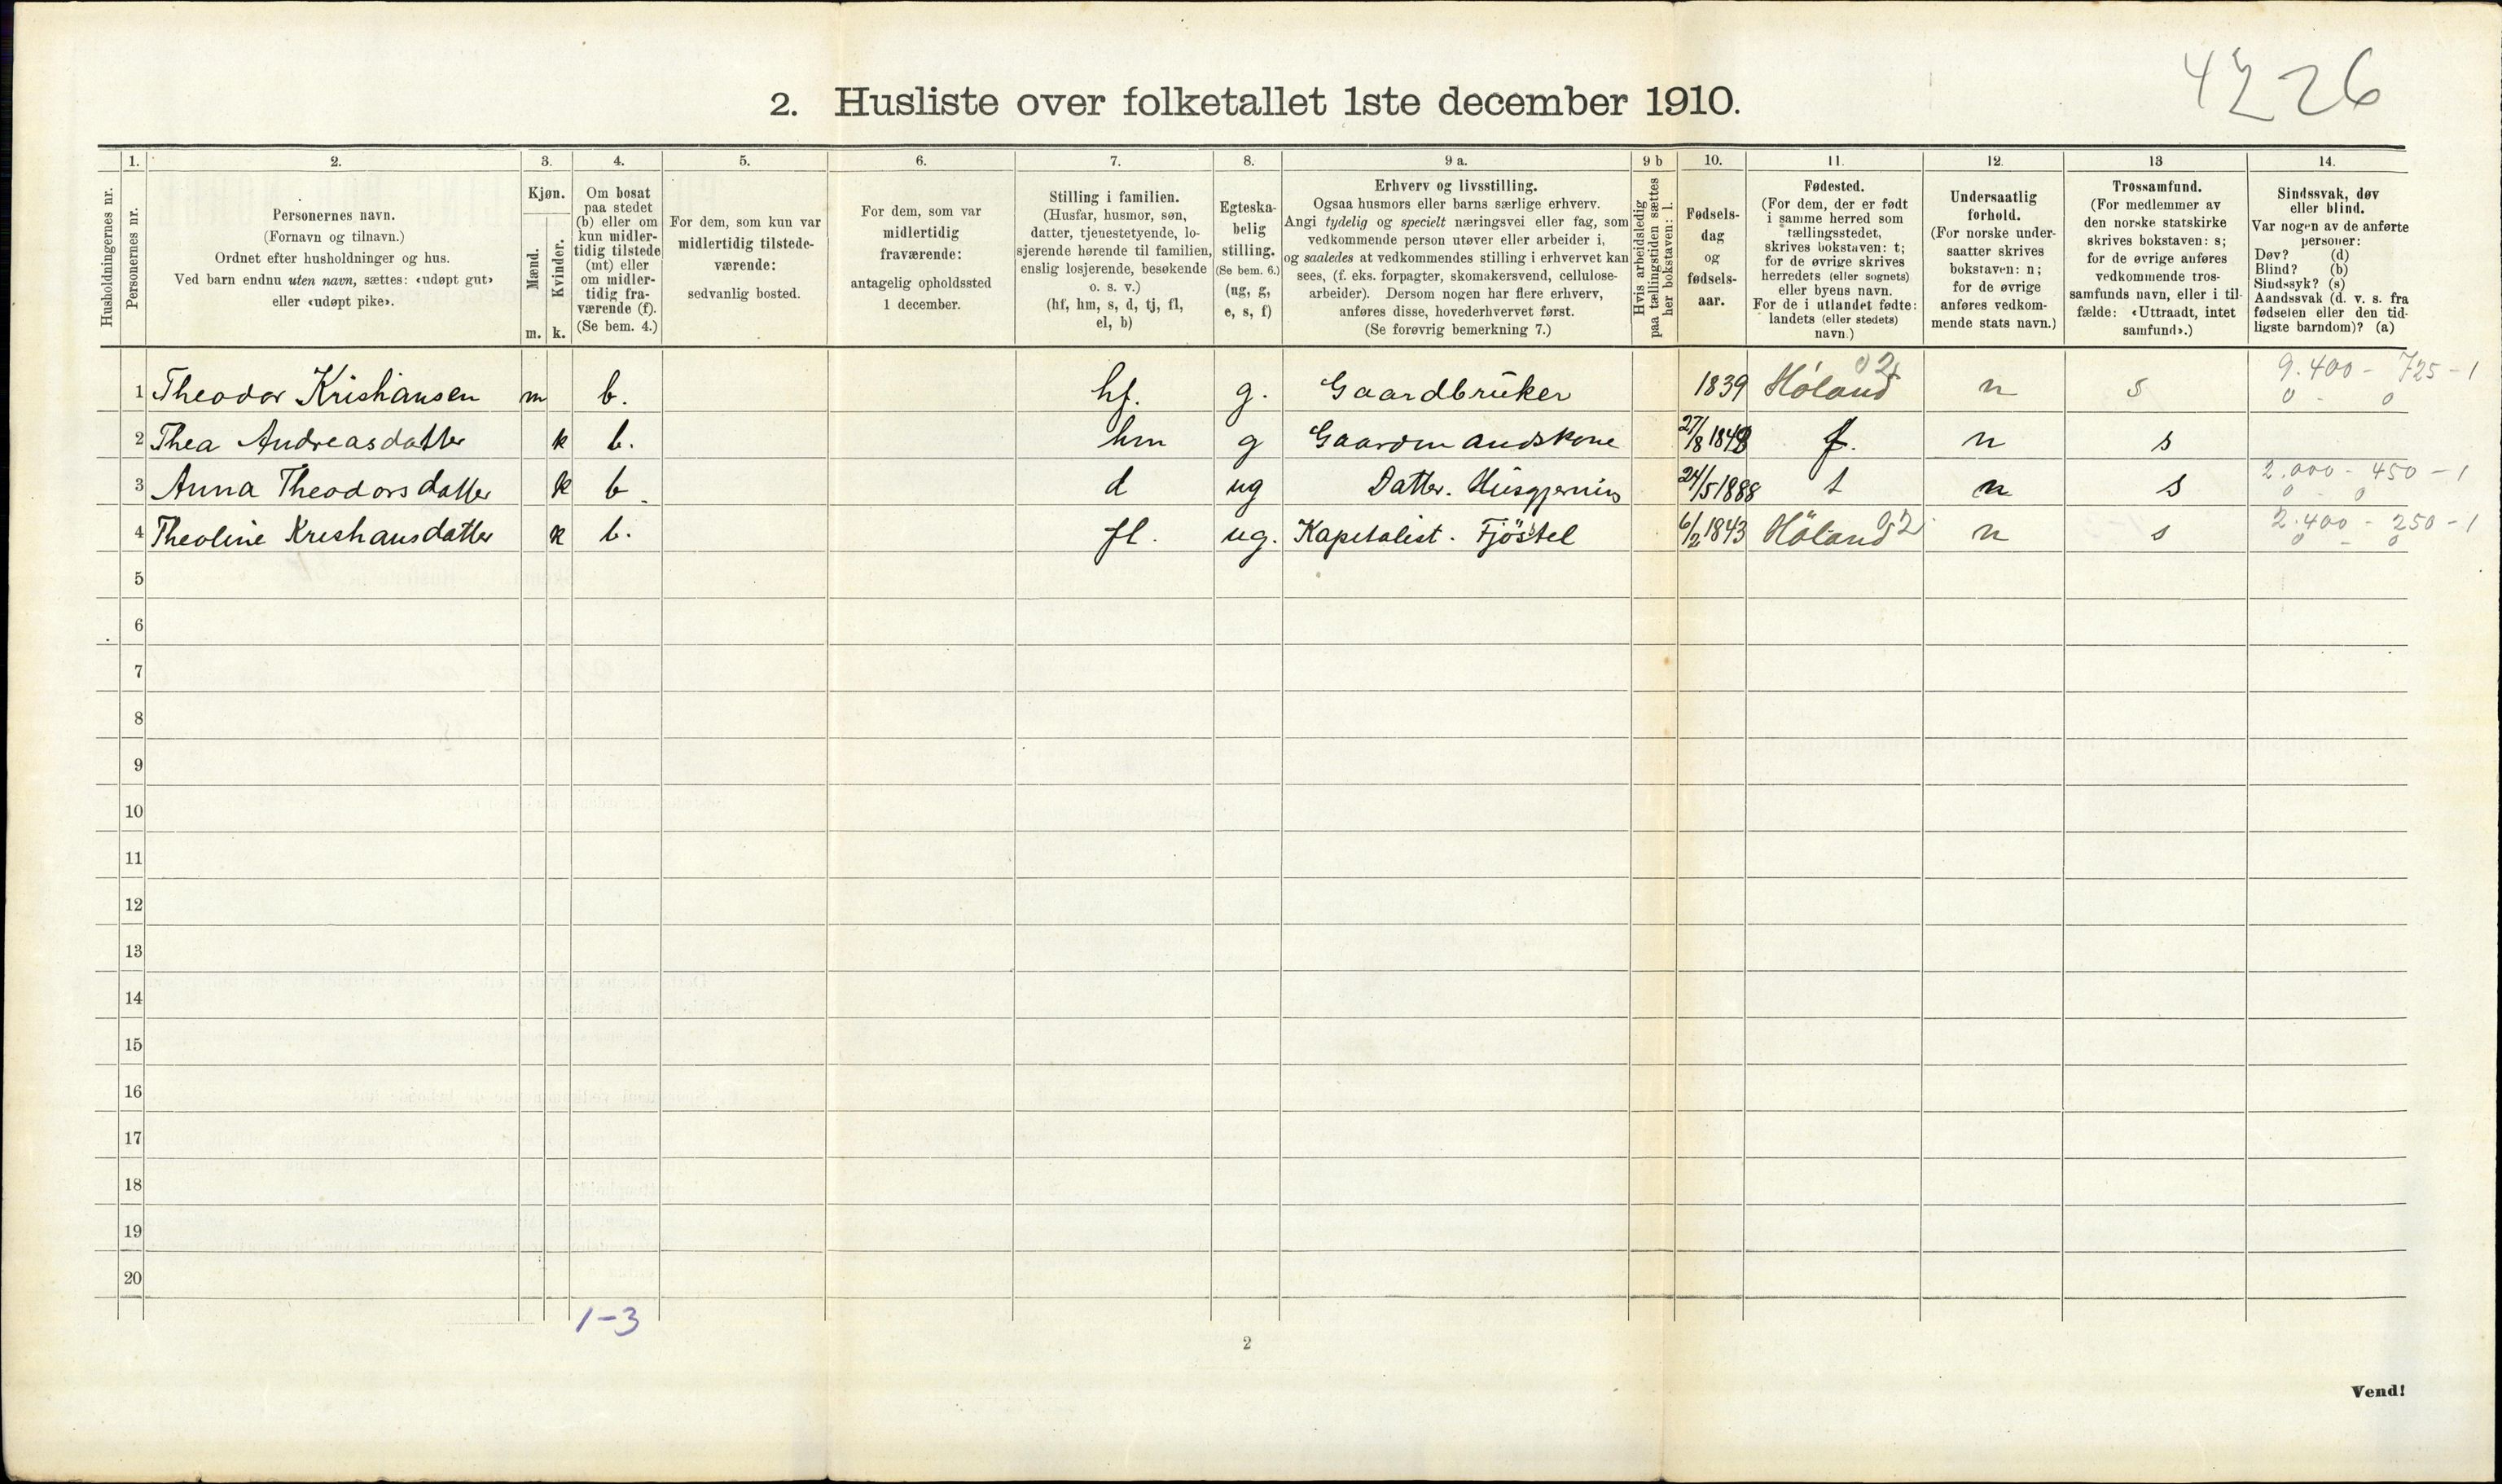 4226
2. Husliste over folketallet 1ste december 1910.
Husholdningernes nr.
1.
Personernes nr.
2.
Personernes navn.
(Fornavn og tilnavn.)
Ordnet efter husholdninger og hus.
Ved barn endnu uten navn, sættes: «udøpt gut»
eller «udøpt pike».
3.
Kjøn.
Mænd.
Kvinder.
m. k.
4.
Om bosat
paa stedet
(b) eller om
kun midler-
tidig tilstede
(mt) eller
om midler-
tidig fra-
værende (f).
(Se bem. 4.)
5.
For dem, som kun var
midlertidig tilstede-
værende:
sedvanlig bosted.
6.
For dem, som var
midlertidig
fraværende:
antagelig opholdssted
1 december.
7.
Stilling i familien.
(Husfar, husmor, søn,
datter, tjenestetyende, lo-
sjerende hørende til familien,
enslig losjerende, besøkende
o. s. v.)
(hf, hm, s, d, tj, fl,
el, b)
8.
Egteska-
belig
stilling.
(Se bem. 6.)
(ug, g,
e, s, f)
9 a.
Erhverv og livsstilling.
Ogsaa husmors eller barns særlige erhverv.
Angi tydelig og specielt næringsvei eller fag, som
vedkommende person utøver eller arbeider i,
og saaledes at vedkommendes stilling i erhvervet kan
sees, (f. eks. forpagter, skomakersvend, cellulose-
arbeider). Dersom nogen har flere erhverv,
anføres disse, hovederhvervet først.
(Se forøvrig bemerkning 7.)
9 b
Hvis arbeidsledig
paa tællingstiden sættes
her bokstaven: l.
10.
Fødsels-
dag
og
fødsels-
aar.
11.
Fødested.
(For dem, der er født
i samme herred som
tællingsstedet,
skrives bokstaven: t;
for de øvrige skrives
herredets (eller sognets)
eller byens navn.
For de i utlandet fødte:
landets (eller stedets)
navn.)
12.
Undersaatlig
forhold.
(For norske under-
saatter skrives
bokstaven: n;
for de øvrige
anføres vedkom-
mende stats navn.)
13
Trossamfund.
(For medlemmer av
den norske statskirke
skrives bokstaven: s;
for de øvrige anføres
vedkommende tros-
samfunds navn, eller i til-
fælde: «Uttraadt, intet
samfund».)
14.
Sindssvak, døv
eller blind.
Var nogen av de anførte
personer:
Døv? (d)
Blind? (b)
Sindssyk? (s)
Aandssvak (d. v. s. fra
fødselen eller den tid-
ligste barndom)? (a)
02 9.400 - 725 - 1
1 Theodor Kristiansen m b. hf. g. Gaardbruker 1839 Høland n s 0 - 0
2 Thea Andreasdatter k b. hm g Gaardmandskone 27/8 1848 t. n s
2.000 - 450 - 1
3 Anna Theodorsdatter k b d ug Datter. Husgjerning 24/5 1888 t n s 0 - 0
02 2.400 - 250 - 1
4 Theoline Kristiansdatter k b. fl. ug. Kapitalist. Fjøstel 6/2 1843 Høland n s 0 - 0
5
6
7
8
9
10
11
12
13
14
15
16
17
18
19
20
1-3
2
Vend!